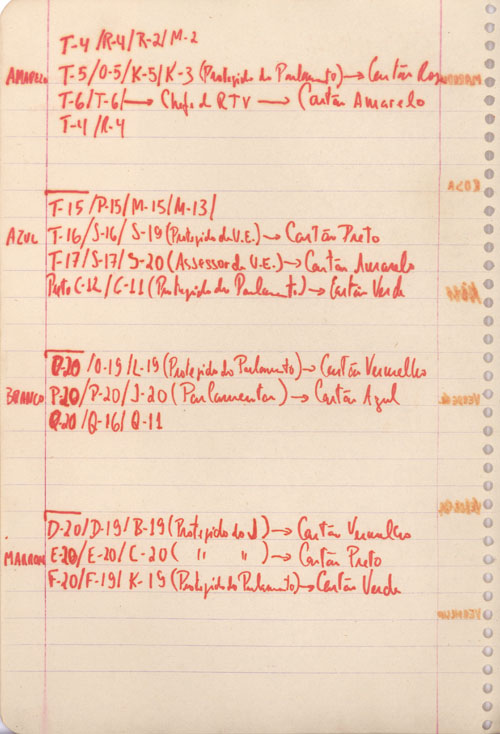 T-4/R-4/R-2/M-2
AMARELO T-5/O-5/K-5/K-3 (Protegido do Parlamento) → Cartão Rosa
T-6/T-6/ → Chefe d RTV → Cartão Amarelo
T-4/R-4
AZUL
T-15/P-15/M-15/M-13/
T-16/S-16/S-19 (Protegido da U.E.) → Cartão Preto
T-17/S-17/S-20 (Assessor da U.E.) → Cartão Amarelo
Preto C-12/C-11 (Protegido do Parlamento) → Cartão Verde
BRANCO
O-20/O-19/L-19 (Protegido do Parlamento) → Cartão Vermelho
P-20/P-20/J-20 (Parlamentar) → Cartão Azul
Q-20/Q-16/Q-11
MARRON
D-20/D-19/B-19 (Protegido do J) → Cartão Vermelho
E-20/E-20/C-20 ( " " ) → Cartão Preto
F-20/F-19/K-19 (Protegido do Parlamento) → Cartão Verde